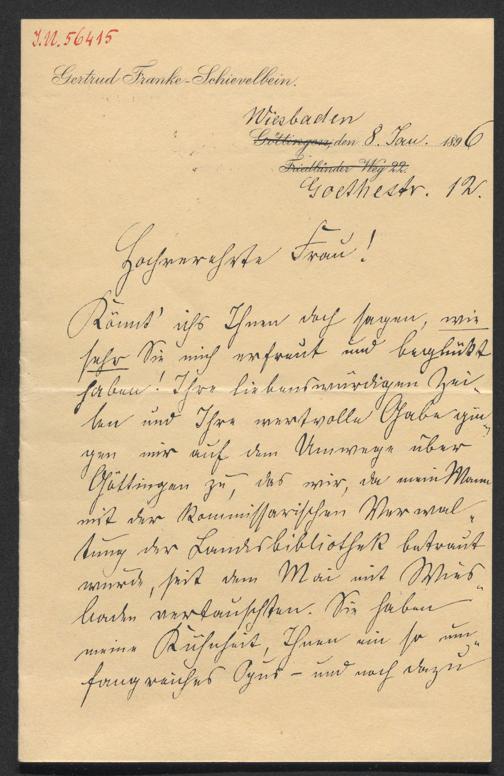 J.N. 56415
Gertrud Franke-Schievelbein.
Wiesbaden
Göttingen, den 8. Jan. 1896
Friedländer Weg 22.
Goethestr. 12.
Hochverehrte Frau!
Könnt' ichs Ihnen doch sagen, wie
sehr Sie mich erfreut und beglückt
haben. Ihre liebenswürdigen Zei-
len und Ihre wertvolle Gabe gin-
gen mir auf dem Umwege über
Göttingen zu, das wir, da mein Mann
mit der kommissarischen Verwal-
tung der Landesbibliothek betraut
wurde, seit dem Mai mit Wies-
baden vertauschten. Sie haben
meine Kühnheit, Ihnen ein so um-
fangreiches Opus – und noch dazu